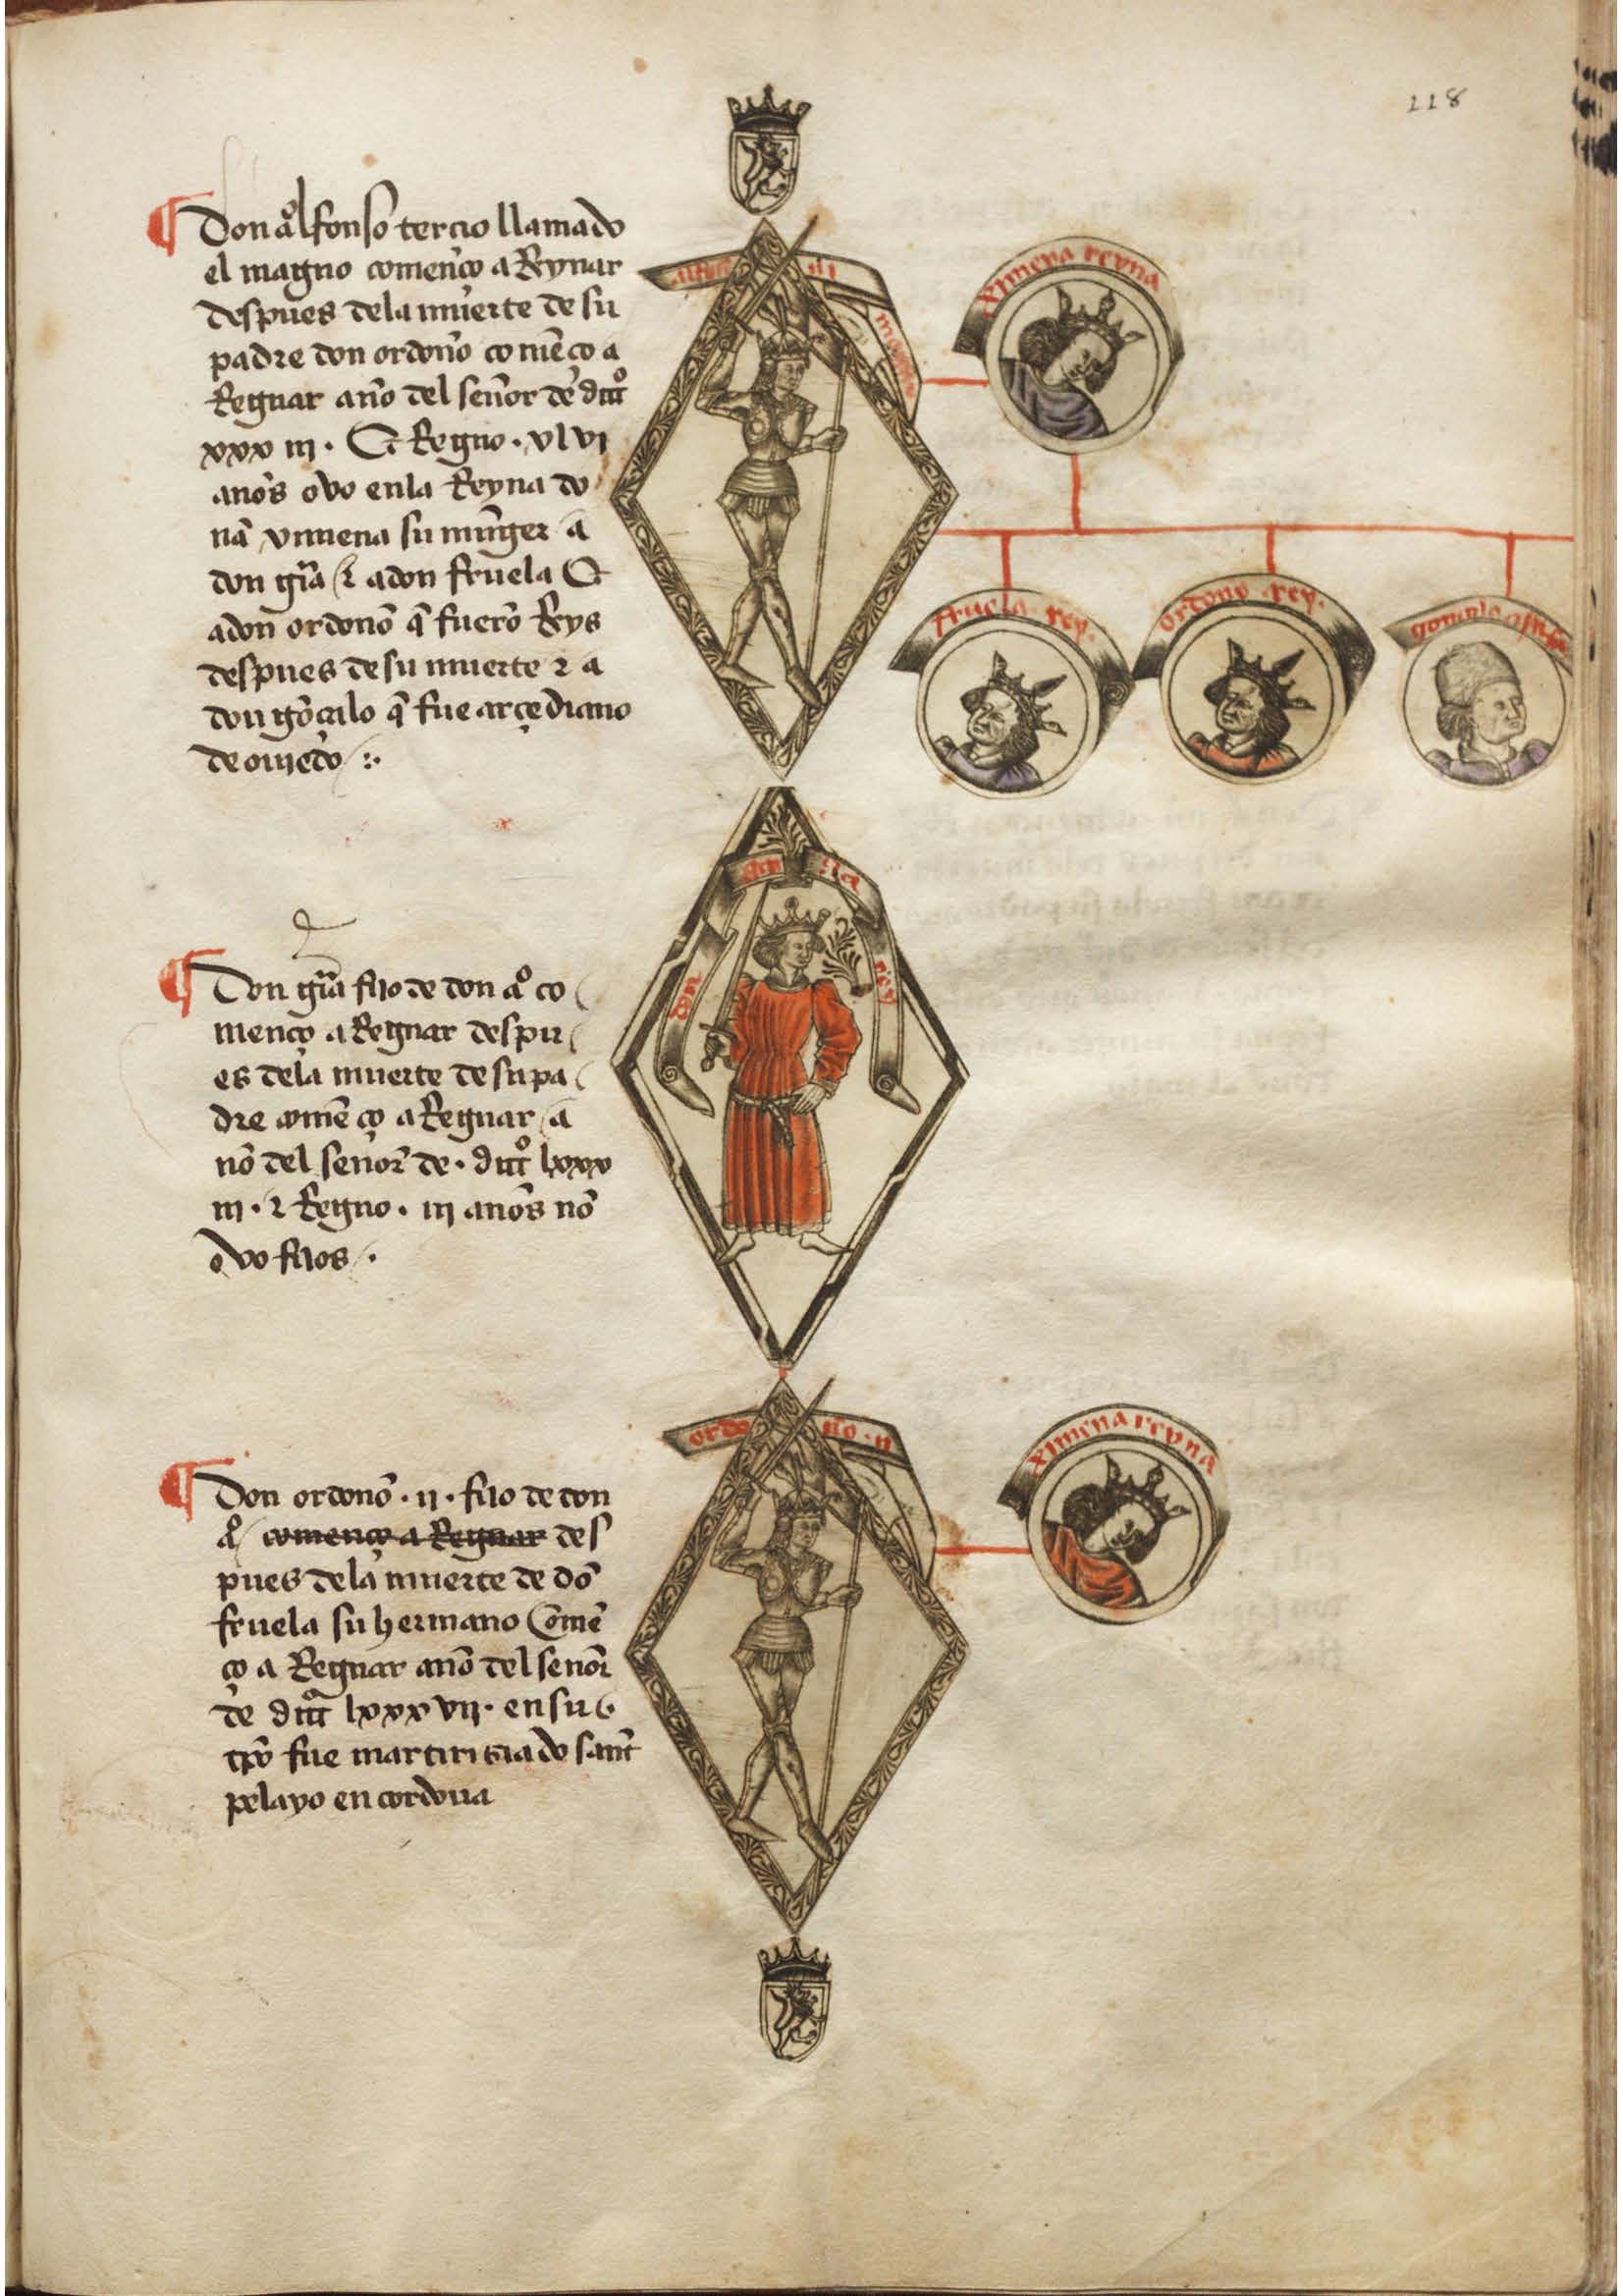 118
Don aºlfonso tercio llamado
el magno començo a Reynar
despues dela muerte de su
padre don ordoño comẽço a
Regnar año del señor de dcccº
xxx iii · Et Regno · xlvi
años ovo enla Reyna do
ña ximena su muger a
don gr̃ia ⁊ adon fruela Et
adon ordoño q̃ fuerõ Reys
despues de su muerte ⁊ a
don gõçalo q̃ fue arçediano
de ouiedo :·
alfon iii
magno
ximena reyna
fruela rey.
ordono rey.
gonçalo
Don gr̃ia fijo de don aº co
menço a Regnar despu
es dela muerte de su pa
dre comẽço a Regnar a
ño del señor de · dcccº lxxx
iii · ⁊ Regno · iii años nõ
ovo fijos ·
don gar cia rey
Don ordoño · ii · fijo de don
aº començo a Regnar des
pues dela muerte de dõ
fruela su hermano Comẽ
ço a Regnar año del señor
de dccc lxxx vii · en su
tpõ fue martirisiado sant
pelayo en cordoua
ordo ño · ii
ximena reyna